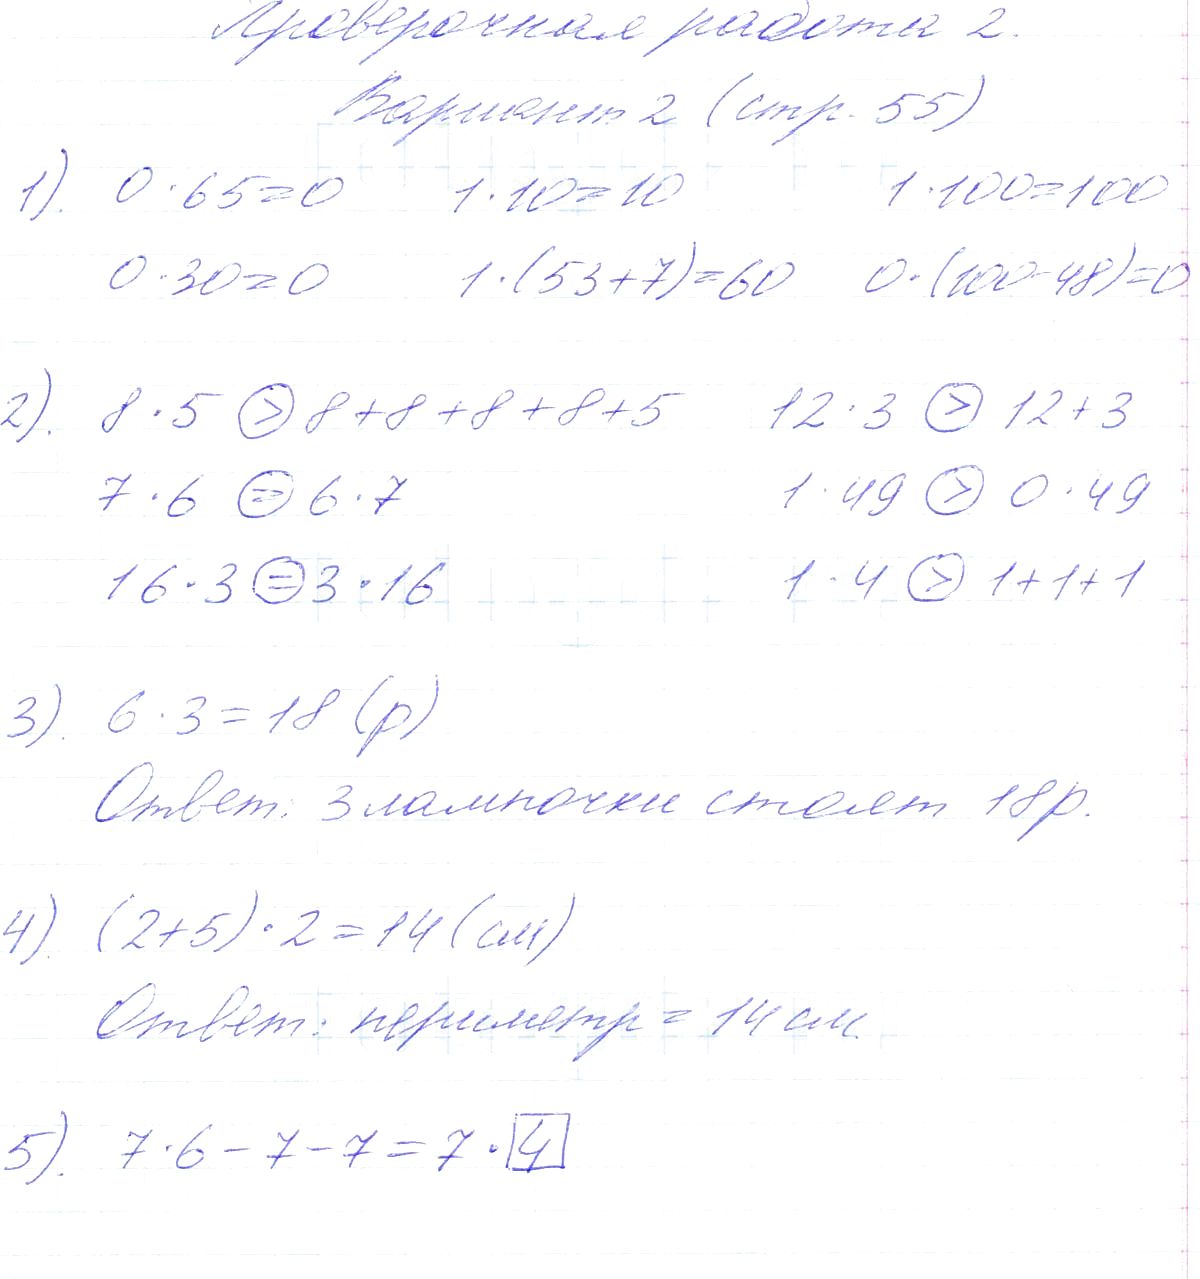 Проверочная работа 2.
Вариант 2 (стр. 55)
1). 0·65=0 1·10=10 1·100=100
0·30=0 1·(53+7)=60 0·(100-48)=0
2). 8·5 > 8+8+8+8+5 12·3 > 12+3
7·6 = 6·7 1·49 > 0·49
16·3 = 3·16 1·4 > 1+1+1
3). 6·3=18 (р)
Ответ: 3 лампочки стоят 18 р.
4) (2+5)·2=14 (см)
Ответ: периметр = 14 см
5). 7·6-7-7=7·4